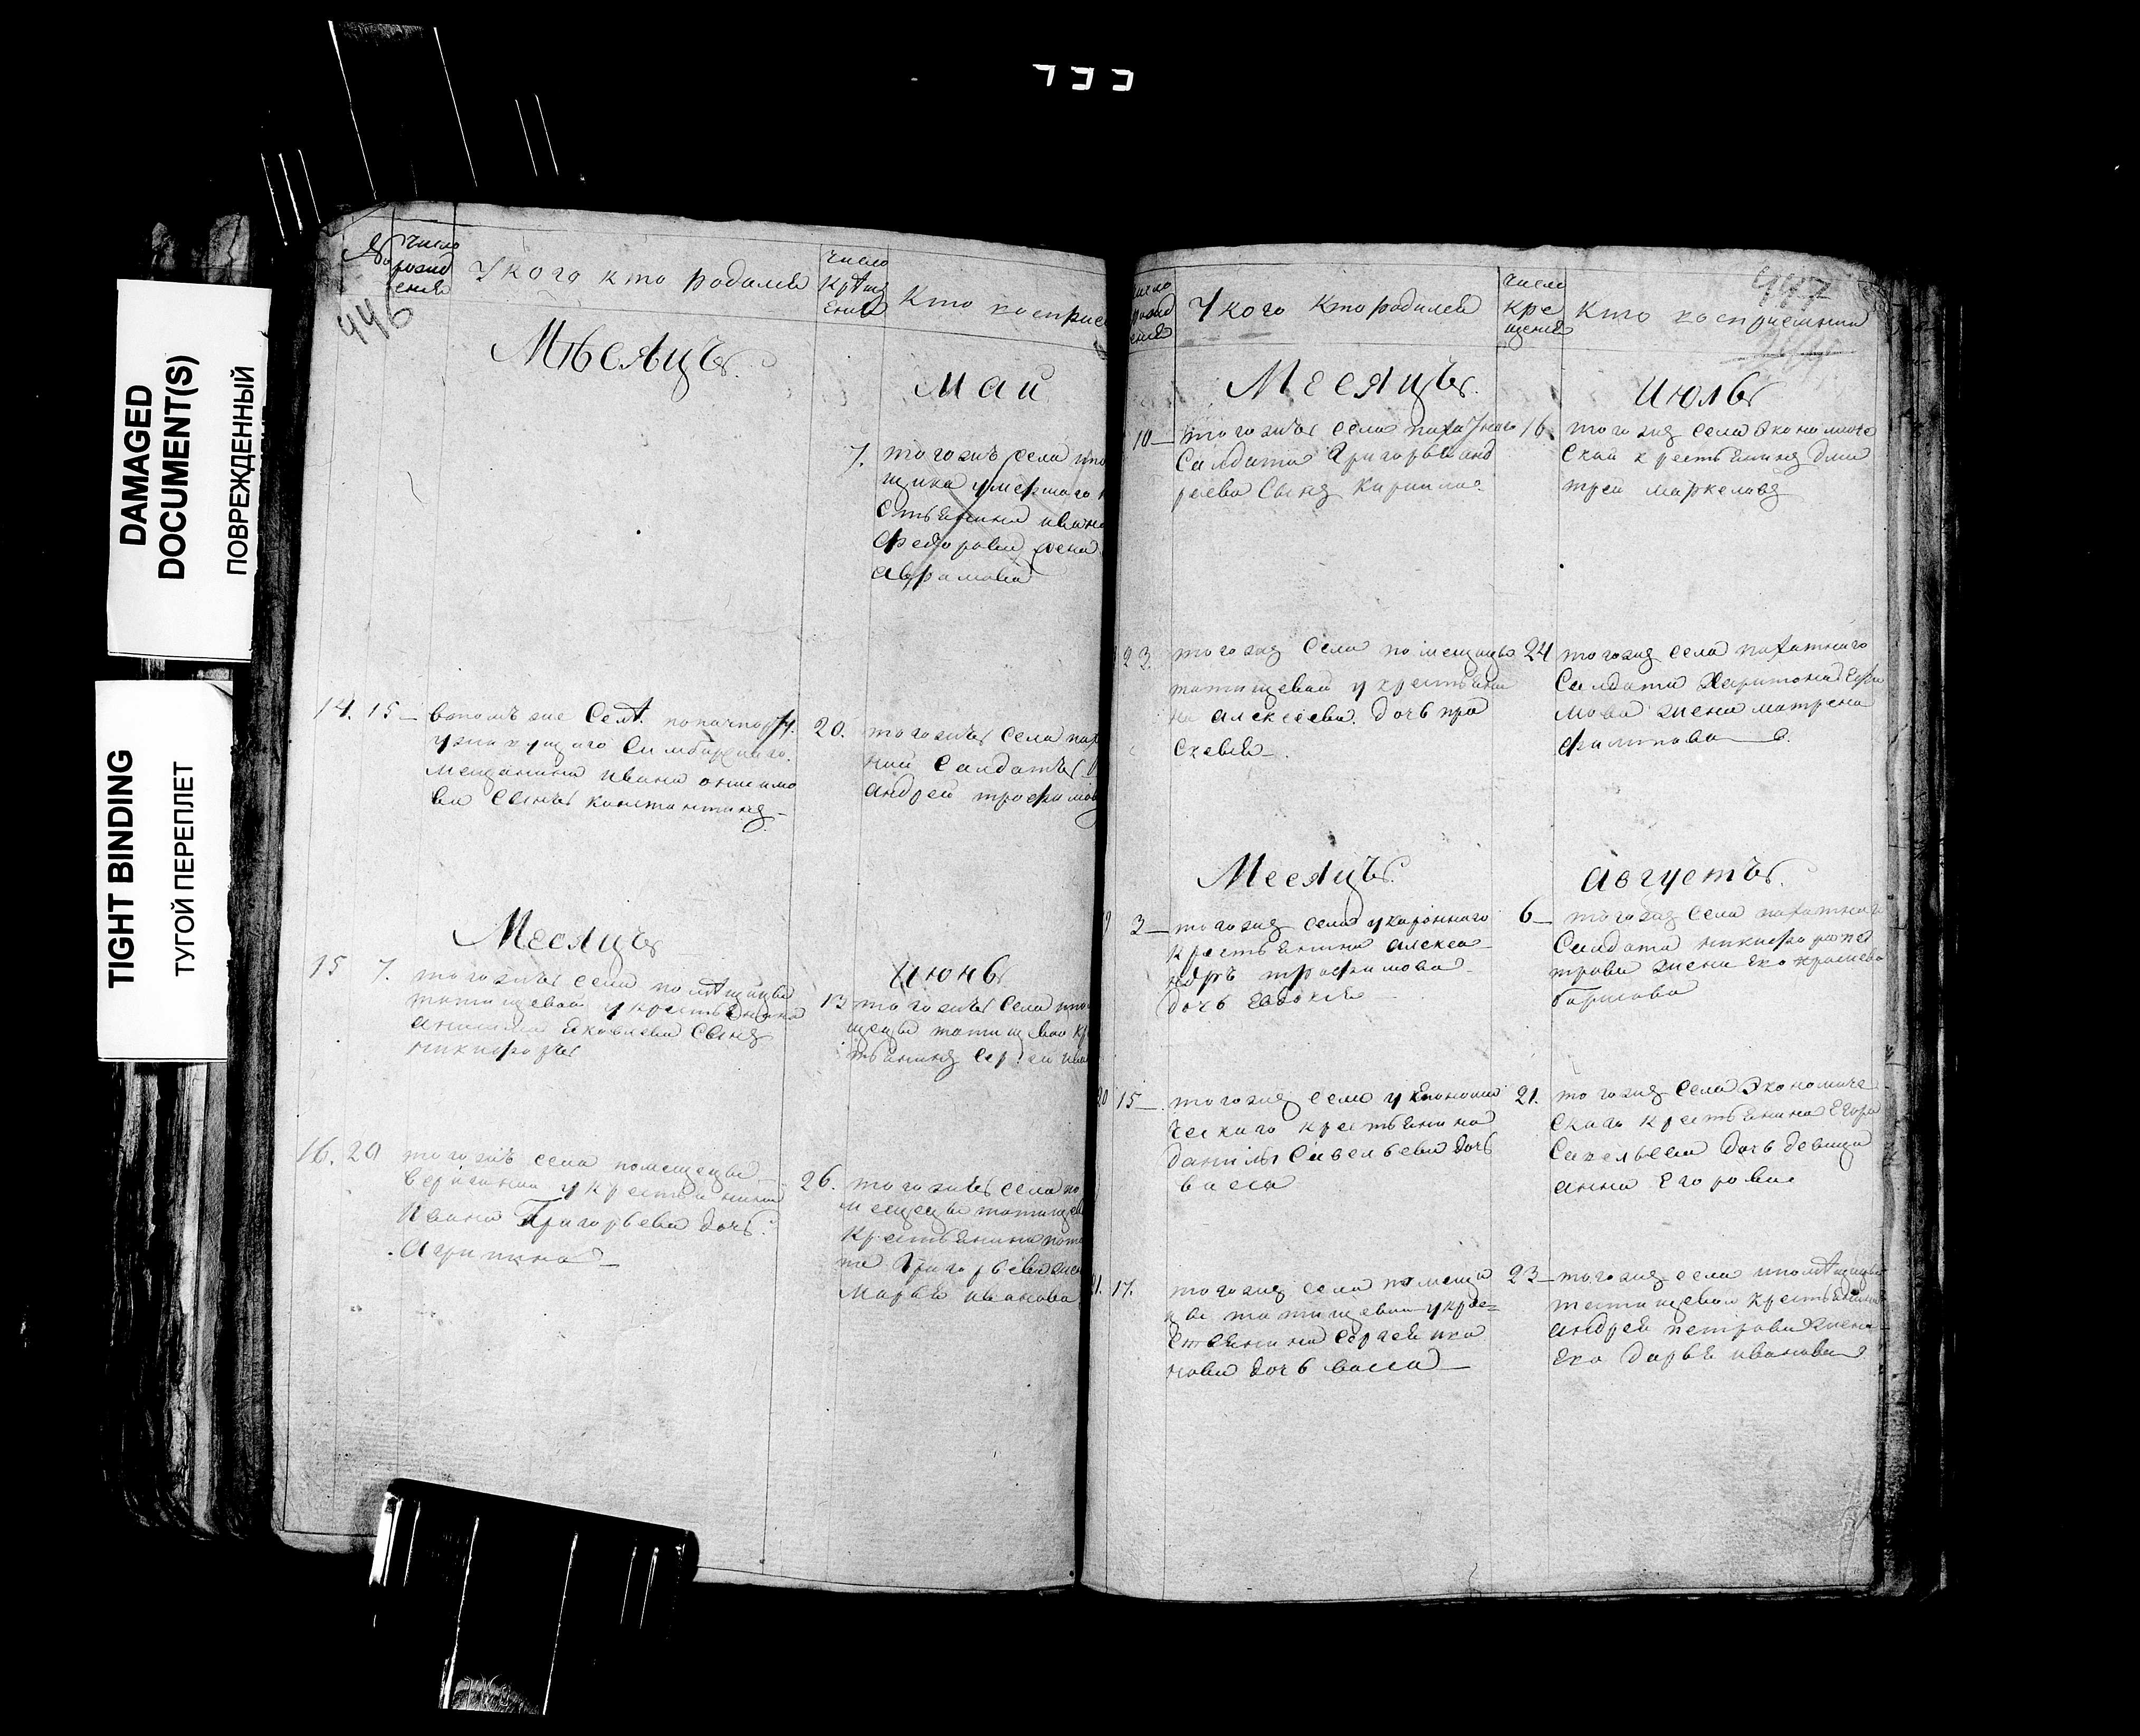 DAMAGED
DOCUMENT(S)
ПОВРЕЖДЕННЫЙ
TIGHT BINDING
ТУГОЙ ПЕРЕПЛЕТ
446
№
число
рожд
ения
У кого кто родился
число
крѣщ
ения
Кто воспри
Мѣсяцъ
Май
7.
тогожъ села
щика умершаго
стьянина ивана
Федорова жена
аврамова
14. 15 —
усимбирскаго
мещанина ивана онисимо
ва сынъ константинъ
20.
тогожъ села пах
ний салдатъ
андрей трофимовъ
Месяцъ
Июнь
15 7.
тогожъ села помѣщицы
татищевой у крестьянина
анисима яковлева сынъ
никифоръ
13
тогожъ села
щицы татищевой кр
тьянинъ сергей ива
16. 20
тогожъ села помещицы
у крестьянина
Ивана Григорьева дочь
Агрипина —
26.
тогожъ села по
мещицы татищев
крестьянина
Григорьева жена
Марья иванова
447
число
рожд
ения
У кого кто родился
число
кре
щения
Кто воспрiемники
Месяцъ
Июль
10 —
тогожъ села пахатнаго
Салдата Григорья анд
реева сынъ кирилла
16
тогожъ села экономиче
ской крестьянинъ дми
трей маркеловъ
23.
тогожъ села помещицы
татищевой у крестьяни
на алексеева дочь пра
сковья —
24
тогожъ села пахатнаго
Салдата Харитона Ефи
мова жена матрена
филипова
Месяцъ
Августъ
3 —
тогожъ села
крестьянина алекса
ндръ трофимова
дочь Евдокея
6 —
тогожъ села пахатнаго
Салдата никифора пе
трова жена ево
20 15 —
тогожъ села у економи
ческаго крестьянина
данилы савельева дочь
васса
21.
тогожъ села экономиче
скаго крестьянина Егора
Савельева дочь девица
анна Егорова
21. 17.
тогожъ села помещи
цы татищевой у кре=
стьянина сергея ива
нова дочь васса —
23 —
тогожъ села помѣщицы
татищевой крестьянина
андрея петрова жена
ево дарья иванова